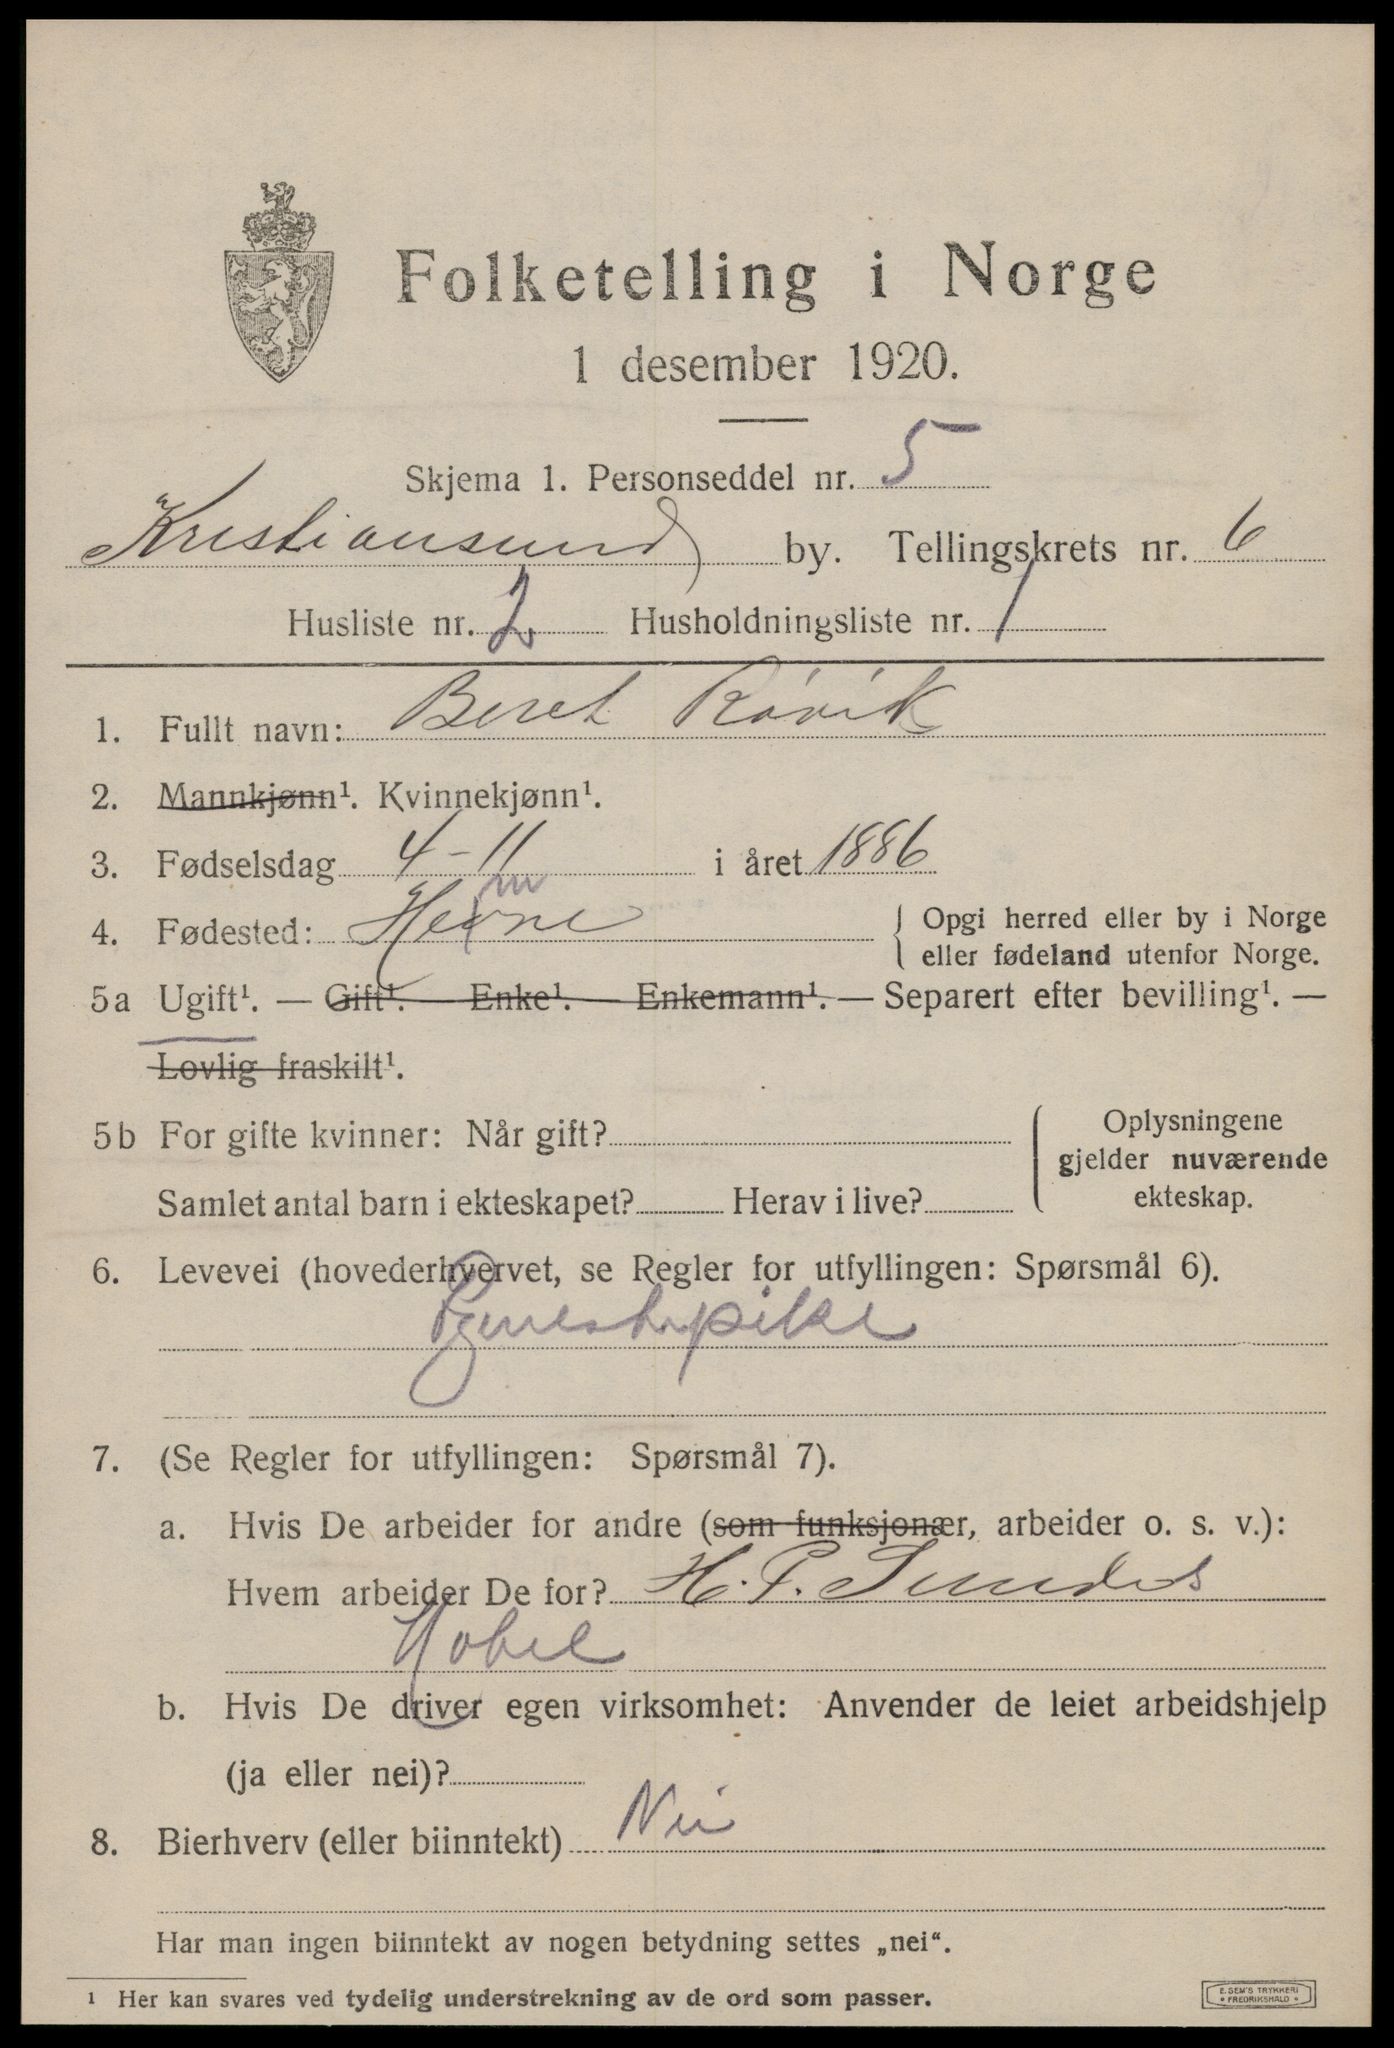 Folketelling i Norge
1 desember 1920.
Skjema 1. Personseddel nr. 5
Kristiansund by. Tellingskrets nr. 6
Husliste nr. 2 Husholdningsliste nr. 1
1. Fullt navn: Beret Røvik
2. Mannkjønn¹. Kvinnekjønn¹.
3. Fødselsdag 4-11 i året 1886
4. Fødested: { Opgi herred eller by i Norge
eller fødeland utenfor Norge.
5a Ugift¹. — Gift¹. Enke¹. — Enkemann¹. — Separert efter bevilling¹. —
Lovlig fraskilt¹.
5b For gifte kvinner: Når gift? { Oplysningene
gjelder nuværende
Samlet antal barn i ekteskapet? Herav i live? ekteskap.
6. Levevei (hovederhvervet, se Regler for utfyllingen: Spørsmål 6).
7. (Se Regler for utfyllingen: Spørsmål 7).
a. Hvis De arbeider for andre (som funksjonær, arbeider o. s. v.):
Hvem arbeider De for? H. P. Sundes
b. Hvis De driver egen virksomhet: Anvender de leiet arbeidshjelp
(ja eller nei)?
8. Bierhverv (eller biinntekt) Nei
Har man ingen biinntekt av nogen betydning settes „nei“.
¹ Her kan svares ved tydelig understrekning av de ord som passer.
E. SEM'S TRYKKERI
• FREDRIKSHALD •